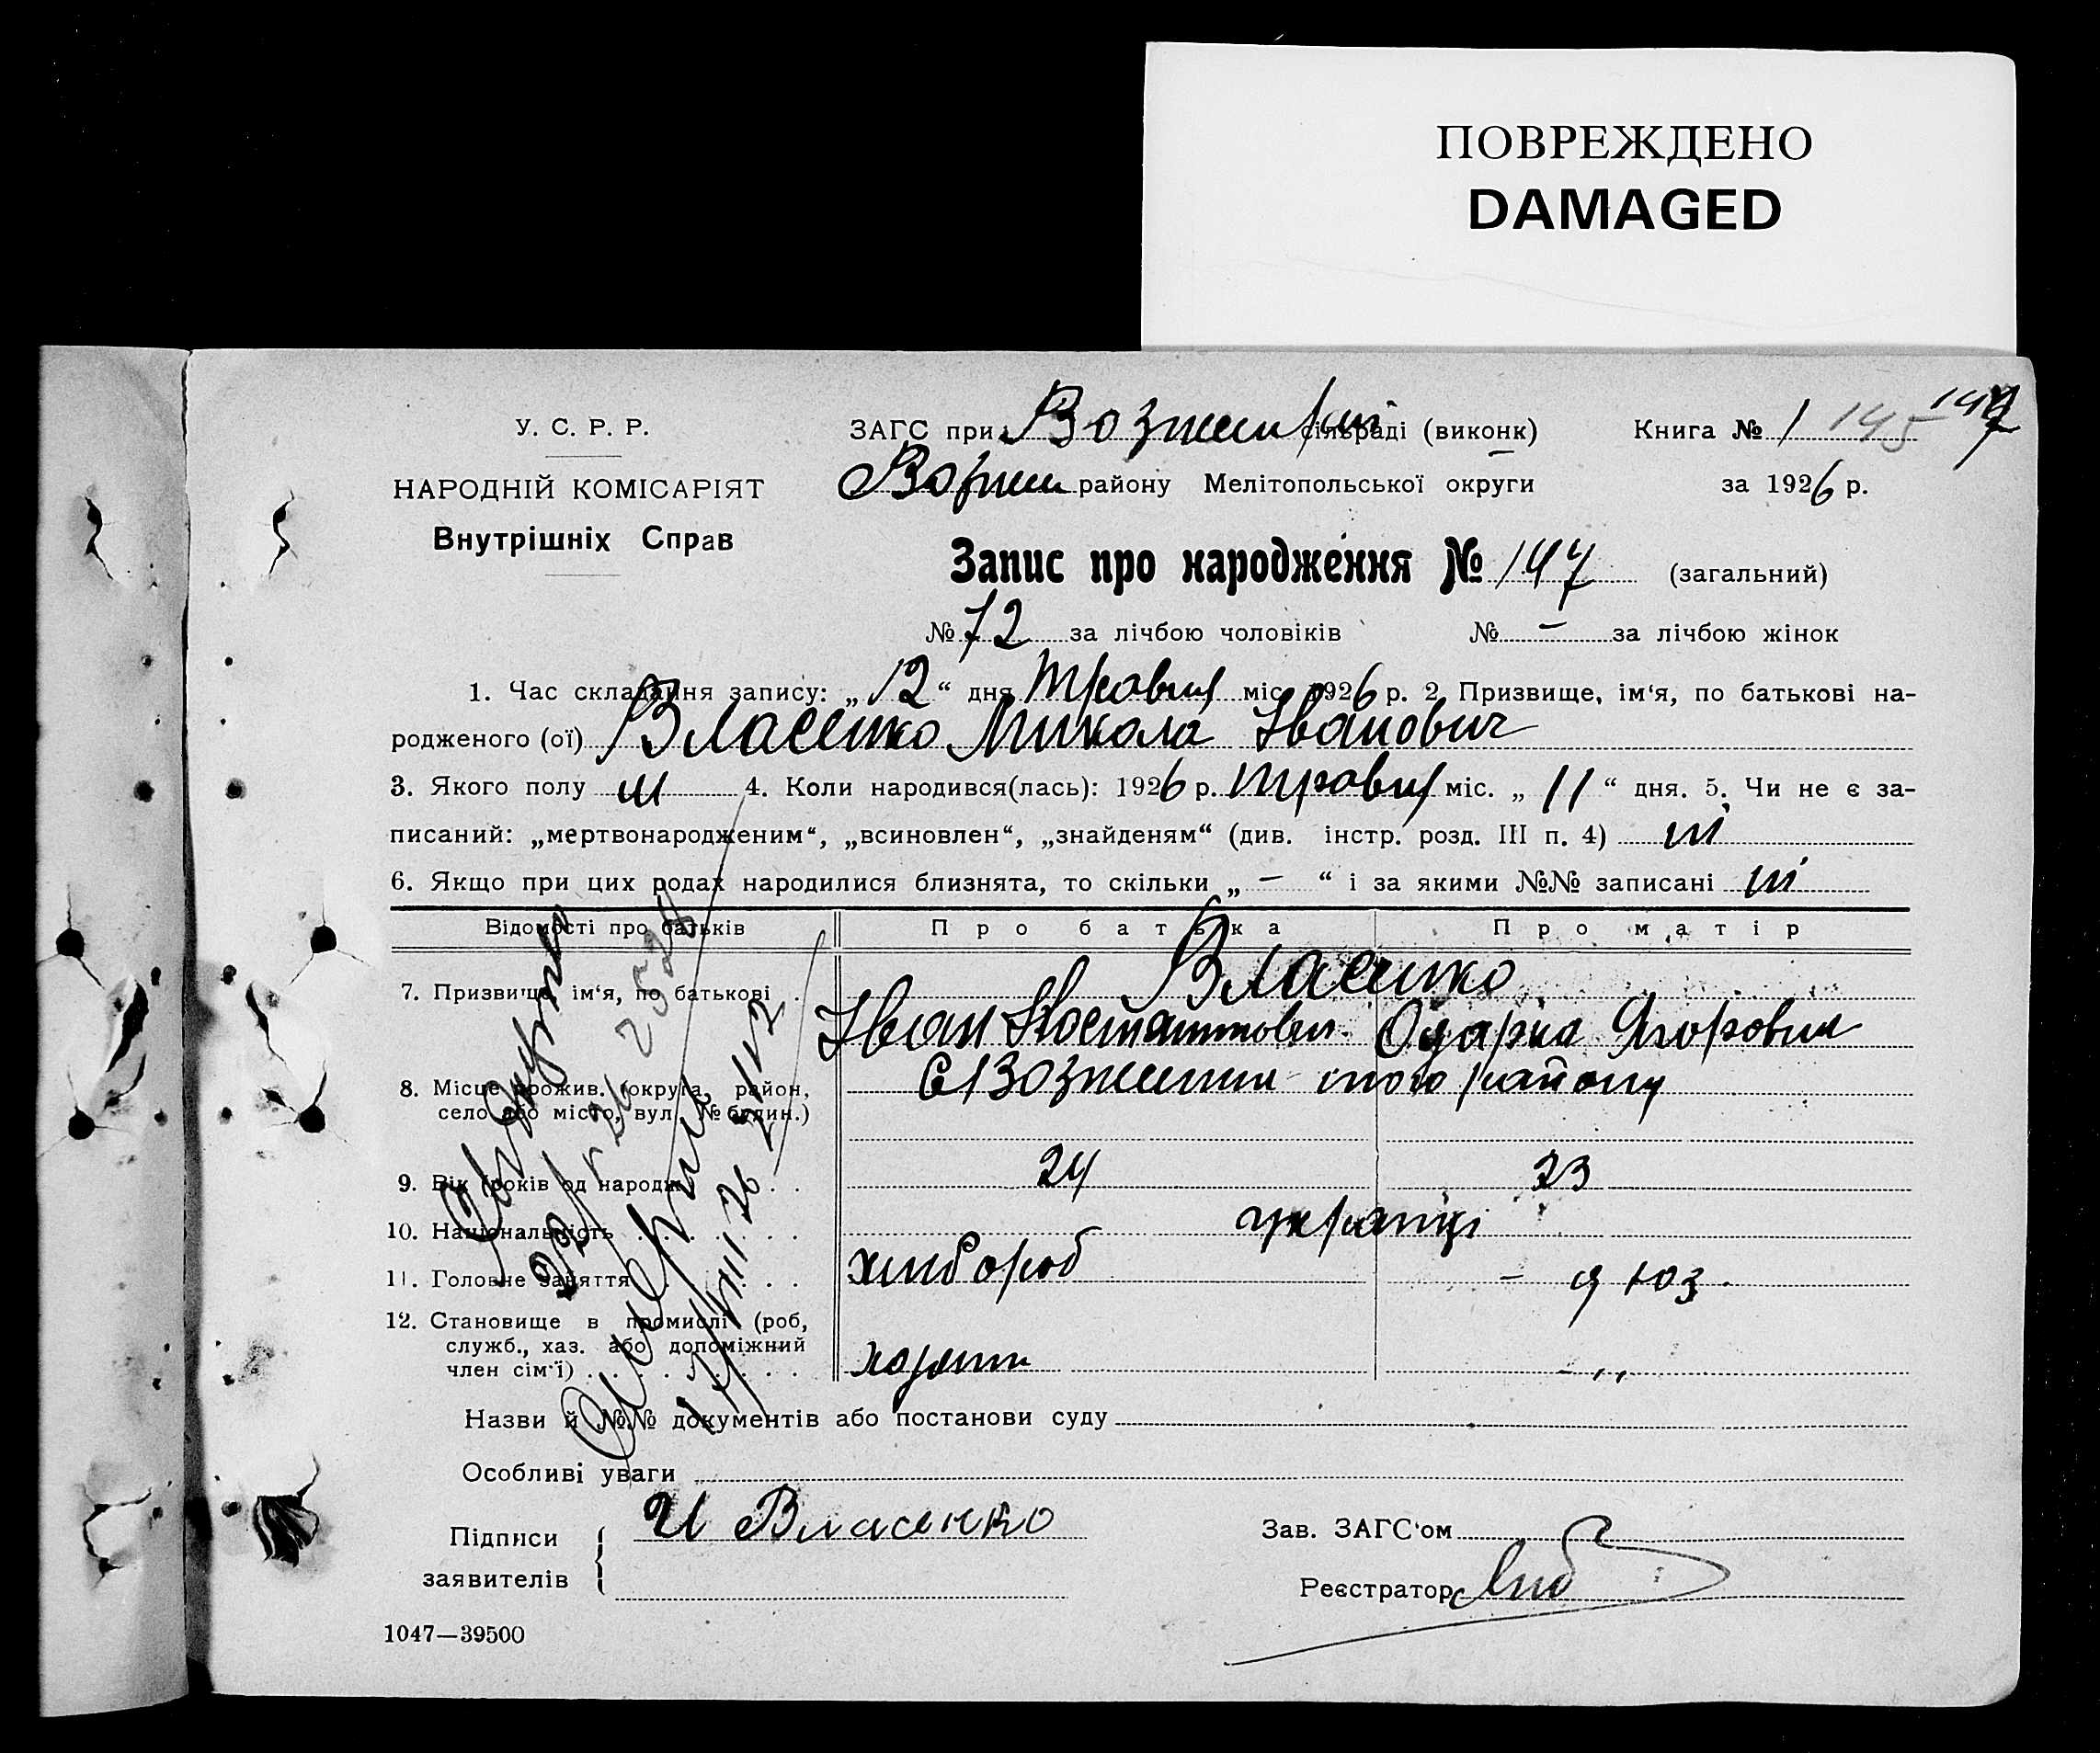 ПОВРЕЖДЕНО
DAMAGED
У. С. Р. Р.
НАРОДНІЙ КОМІСАРІЯТ
Внутрішніх Справ
ЗАГС при сільраді (виконк)
району Мелітопольської округи
Книга № 1 145 147
за 1926 р.
Запис про народження № 147 (загальний)
№ 72 за лічбою чоловіків № – за лічбою жінок
1. Час складання запису: „ 12 “ дня Травня міс. 1926 р. 2. Призвище, ім‘я, по батькові на-
родженого (ої) Власенко Микола Іванович
3. Якого полу ч 4. Коли народився(лась): 1926 р. Травня міс. „ 11 “ дня. 5. Чи не є за-
писаний: „мертвонародженим“, „всиновлен“, „знайденям“ (див. інстр. розд. III п. 4) ні
6. Якщо при цих родах народилися близнята, то скільки „ – “ і за якими №№ записані ні
Відомості про батьків Про батька Про матір
7. Призвище, ім‘я, по батькові . Власенко
Іван Одарка
8. Місце прожив. (округа, район,
село або місто, вул. № будин.)
того району
9. Вік (років од народж. . . 24 23
10. Національність . . . . . українці
11. Головне заняття . . . . хлібороб –
12. Становище в промислі (роб,
служб., хаз. або допоміжний
член сім‘ї) . . . . . . . – „
Назви й №№ документів або постанови суду
Особливі уваги
Підписи
заявителів
И Власенко
Зав. ЗАГС‘ом
Реєстратор
1047—39500